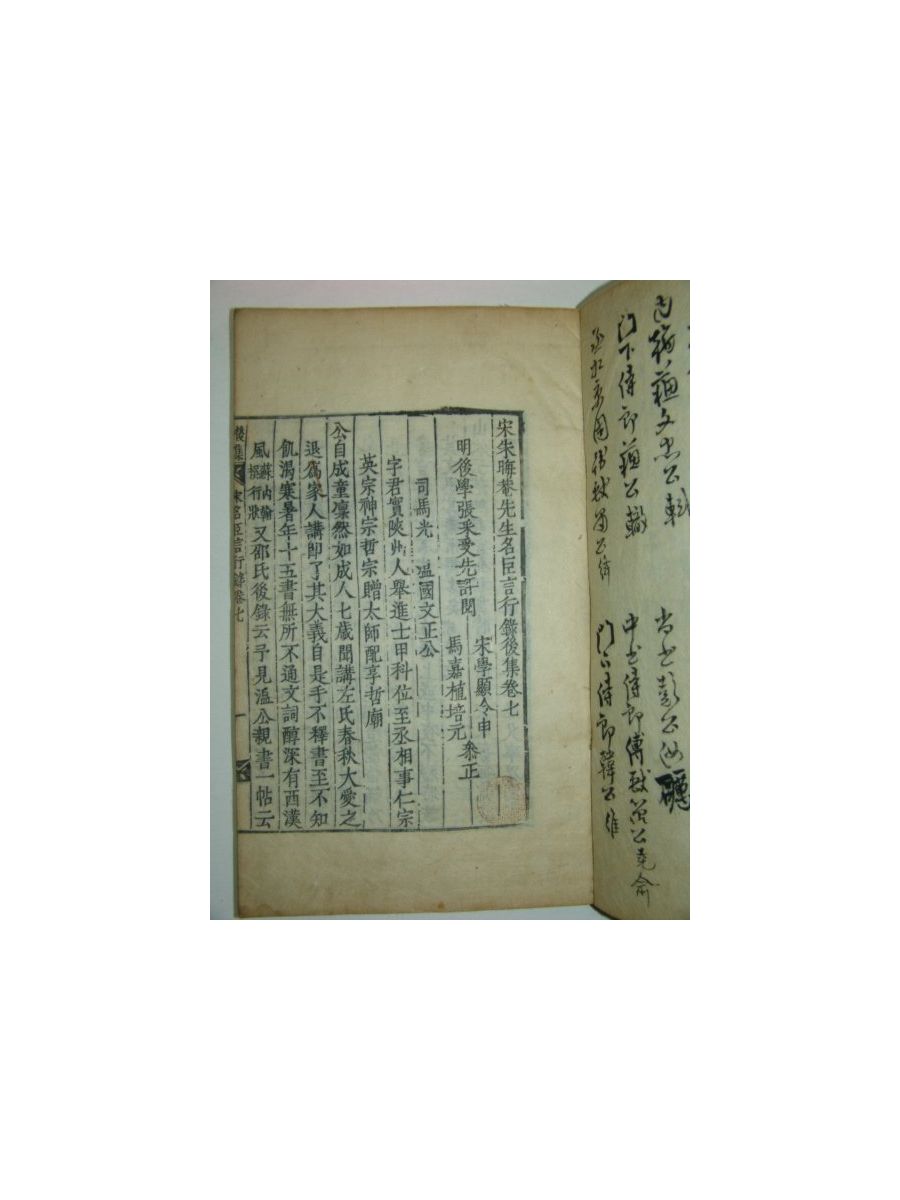 内翰蘇文忠公軾
尚書彭公汝礪
門下侍郎蘇公轍
中書侍郎傅獻簡公堯俞
門下侍郎韓公維
宋朱晦菴先生名臣言行錄後集卷七
明後學張采受先評閱
宋學顯令申
馬嘉植培元
叅正
司馬光 温國文正公
字君實陝州人舉進士甲科位至丞相事仁宗
英宗神宗哲宗贈太師配享哲廟
公自成童凛然如成人七歲聞講左氏春秋大愛之
退爲家人講即了其大義自是手不釋書至不知
飢渴寒暑年十五書無所不通文詞醇深有西漢
風蘇内翰撰行狀又邵氏後錄云予見温公親書一帖云
後集 宋名臣言行錄卷七 一